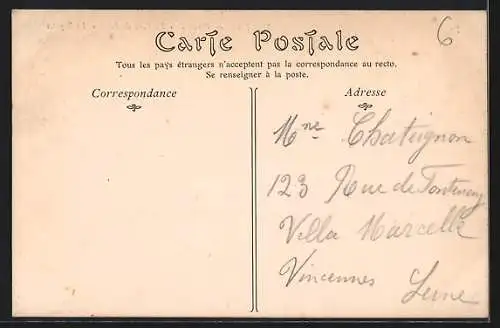 6
Carte Postale
Tous les pays étrangers n'acceptent pas la correspondance au recto.
Se renseigner à la poste.
Correspondance
Adresse
Mme Chateignon
123 Rue de Fontenay
Villa Marcelle
Vincennes Seine